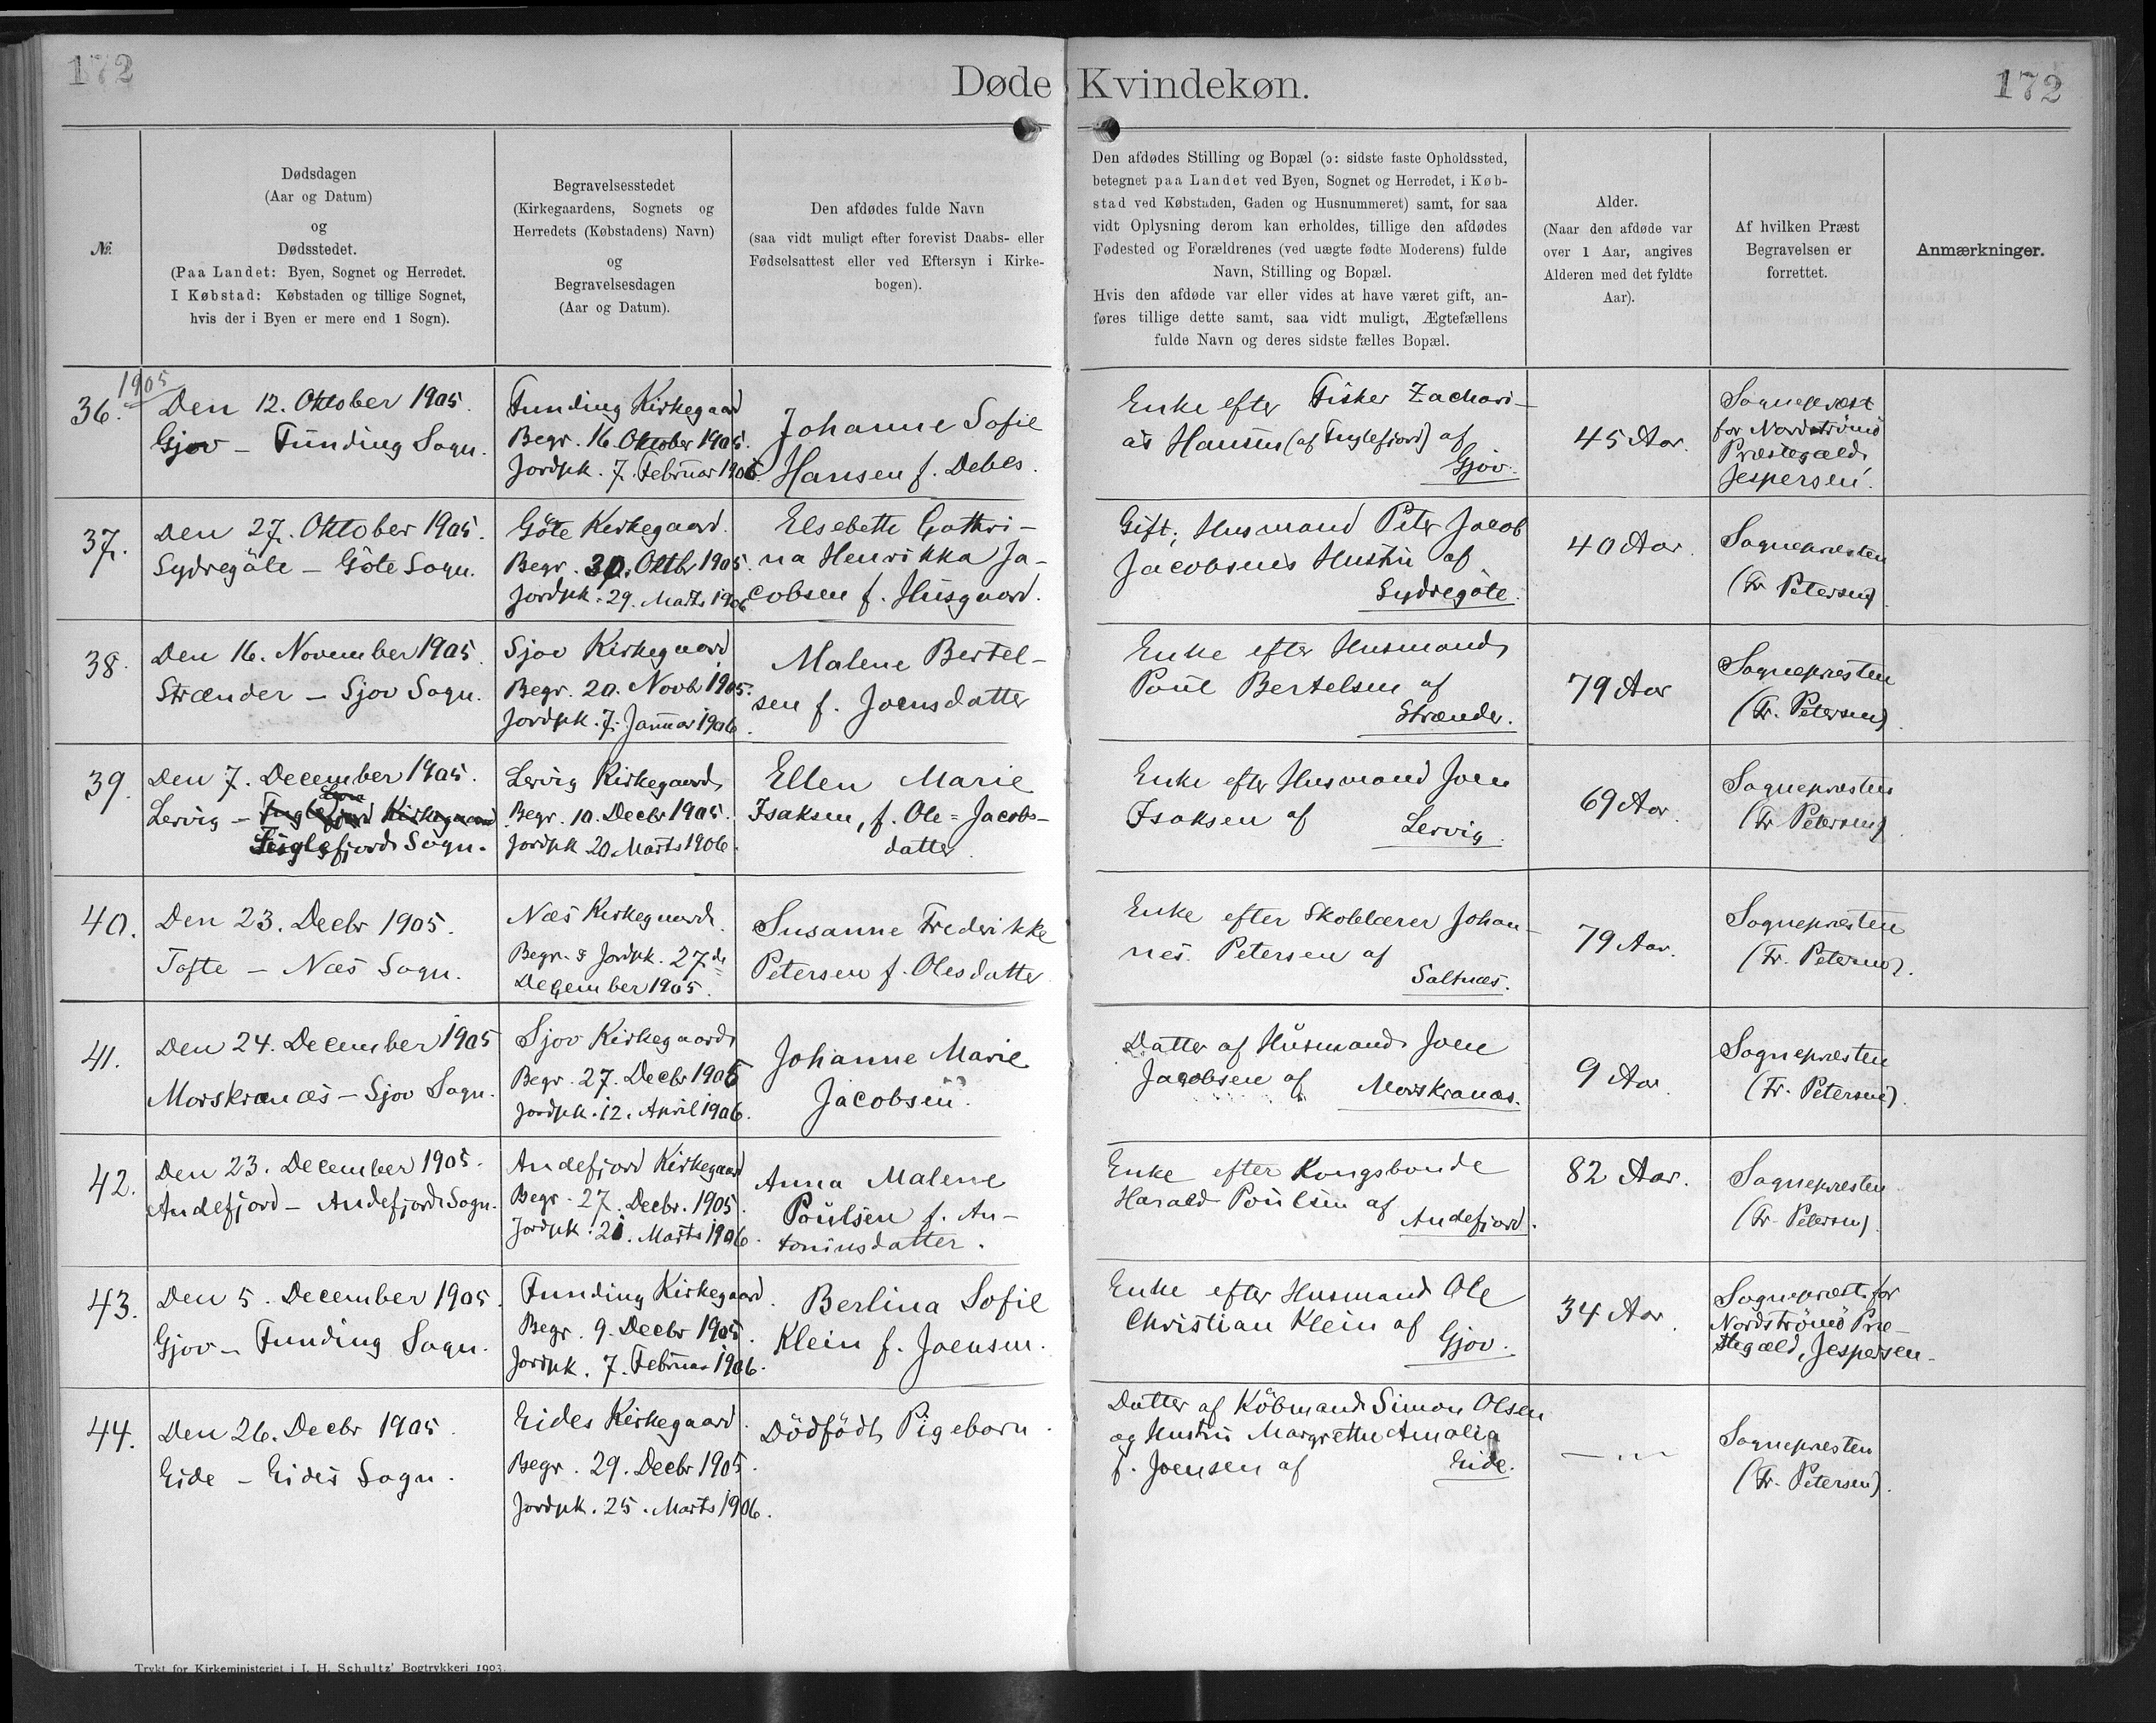 172
Døde Kvindekøn.
172
№
Dødsdagen
(Aar og Datum)
og
Dødsstedet.
(Paa Landet: Byen, Sognet og Herredet.
I Købstad: Købstaden og tillige Sognet,
hvis der i Byen er mere end 1 Sogn).
Begravelsesstedet
(Kirkegaardens, Sognets og
Herredets (Købstadens) Navn)
og
Begravelsesdagen
(Aar og Datum).
Den afdødes fulde Navn
(saa vidt muligt efter forevist Daabs- eller
Fødselsattest eller ved Eftersyn i Kirke-
bogen).
Den afdødes Stilling og Bopæl (ɔ: sidste faste Opholdssted,
betegnet paa Landet ved Byen, Sognet og Herredet, i Køb-
stad ved Købstaden, Gaden og Husnummeret) samt, for saa
vidt Oplysning derom kan erholdes, tillige den afdødes
Fødested og Forældrenes (ved uægte fødte Moderens) fulde
Navn, Stilling og Bopæl.
Hvis den afdøde var eller vides at have været gift, an-
føres tillige dette samt, saa vidt muligt, Ægtefællens
fulde Navn og deres sidste fælles Bopæl.
Alder.
(Naar den afdøde var
over 1 Aar, angives
Alderen med det fyldte
Aar).
Af hvilken Præst
Begravelsen er
forrettet.
Anmærkninger.
1905
36.
Den 12. Oktober 1905.
Gjov – Funding Sogn.
Funding Kirkegaard
Begr. 16. Oktober 1905.
Jordpk. 7. Februar 1906.
Johanne Sofie
Hansen f. Debes.
Enke efter Fisker Zachari-
as Hansen (af Fuglefjord) af
Gjov.
45 Aar.
Sognepræst
for Nordströmö
Præstegæld,
Jespersen.
37.
Den 27. Oktober 1905.
Sydregöte – Göte Sogn.
Göte Kirkegaard.
Begr. 30. Oktbr 1905.
Jordpk. 29. Marts 1906
Elsebeth Cathri-
na Henrikka Ja-
cobsen f. Husgaard.
Gift; Husmand Peter Jacob
Jacobsens Hustru af
Sydregöte.
40 Aar.
Sognepræsten
(Fr. Petersen)
38.
Den 16. November 1905.
Strænder – Sjov Sogn.
Sjov Kirkegaard
Begr. 20. Novb 1905.
Jordpk. 7. Januar 1906.
Malene Bertel-
sen f. Joensdatter
Enke efter Husmand
Poul Bertelsen af
Strænder.
79 Aar
Sognepræsten
(Fr. Petersen)
39.
Den 7. December 1905.
Lervig – Fuglefjord Kirkegaard
Fuglefjords Sogn.
Lervig Kirkegaard
Begr. 10. Decbr 1905.
Jordpk 20 Marts 1906.
Ellen Marie
Isaksen, f. Ole=Jacobs-
datter.
Enke efter Husmand Joen
Isaksen af
Lervig.
69 Aar.
Sognepræsten
(Fr. Petersen)
40.
Den 23. Decbr 1905.
Tofte – Næs Sogn.
Næs Kirkegaard.
Begr. & Jordpk. 27de
December 1905.
Susanne Frederikke
Petersen f. Olesdatter
Enke efter Skolelærer Johan-
nes Petersen af
Saltnæs.
79 Aar.
Sognepræsten
(Fr. Petersen).
41.
Den 24. December 1905
Morskranæs – Sjov Sogn.
Sjov Kirkegaard
Begr. 27. Decbr 1905
Jordpk. 12. April 1906.
Johanne Marie
Jacobsen.
Datter af Husmand Joen
Jacobsen af Morskranæs.
9 Aar.
Sognepræsten
(Fr. Petersen).
42.
Den 23. December 1905.
Andefjord – Andefjords Sogn.
Andefjord Kirkegaard
Begr. 27. Decbr. 1905.
Jordpk. 21. Marts 1906.
Anna Malene
Poulsen f. An-
toniusdatter.
Enke efter Kongsbonde
Harald Poulsen af
Andefjord.
82 Aar.
Sognepræsten
(Fr. Petersen).
43.
Den 5. December 1905.
Gjov – Funding Sogn.
Funding Kirkegaard.
Begr. 9. Decbr 1905.
Jordpk. 7. Februar 1906.
Berlina Sofie
Klein f. Joensen.
Enke efter Husmand Ole
Christian Klein af
Gjov.
34 Aar.
Sognepræst for
Nordströmö Præ-
stegæld, Jespersen.
44.
Den 26. Decbr 1905.
Eide – Eides Sogn.
Eides Kirkegaard.
Begr. 29. Decbr 1905.
Jordpk. 25. Marts 1906.
Dödfödt Pigebarn.
Datter af Köbmand Simon Olsen
og Hustru Margrethe Amalia
f. Joensen af
Eide.
— „ —
Sognepræsten
(Fr. Petersen).
Trykt for Kirkeministeriet i J. H. Schultz' Bogtrykkeri 1903.